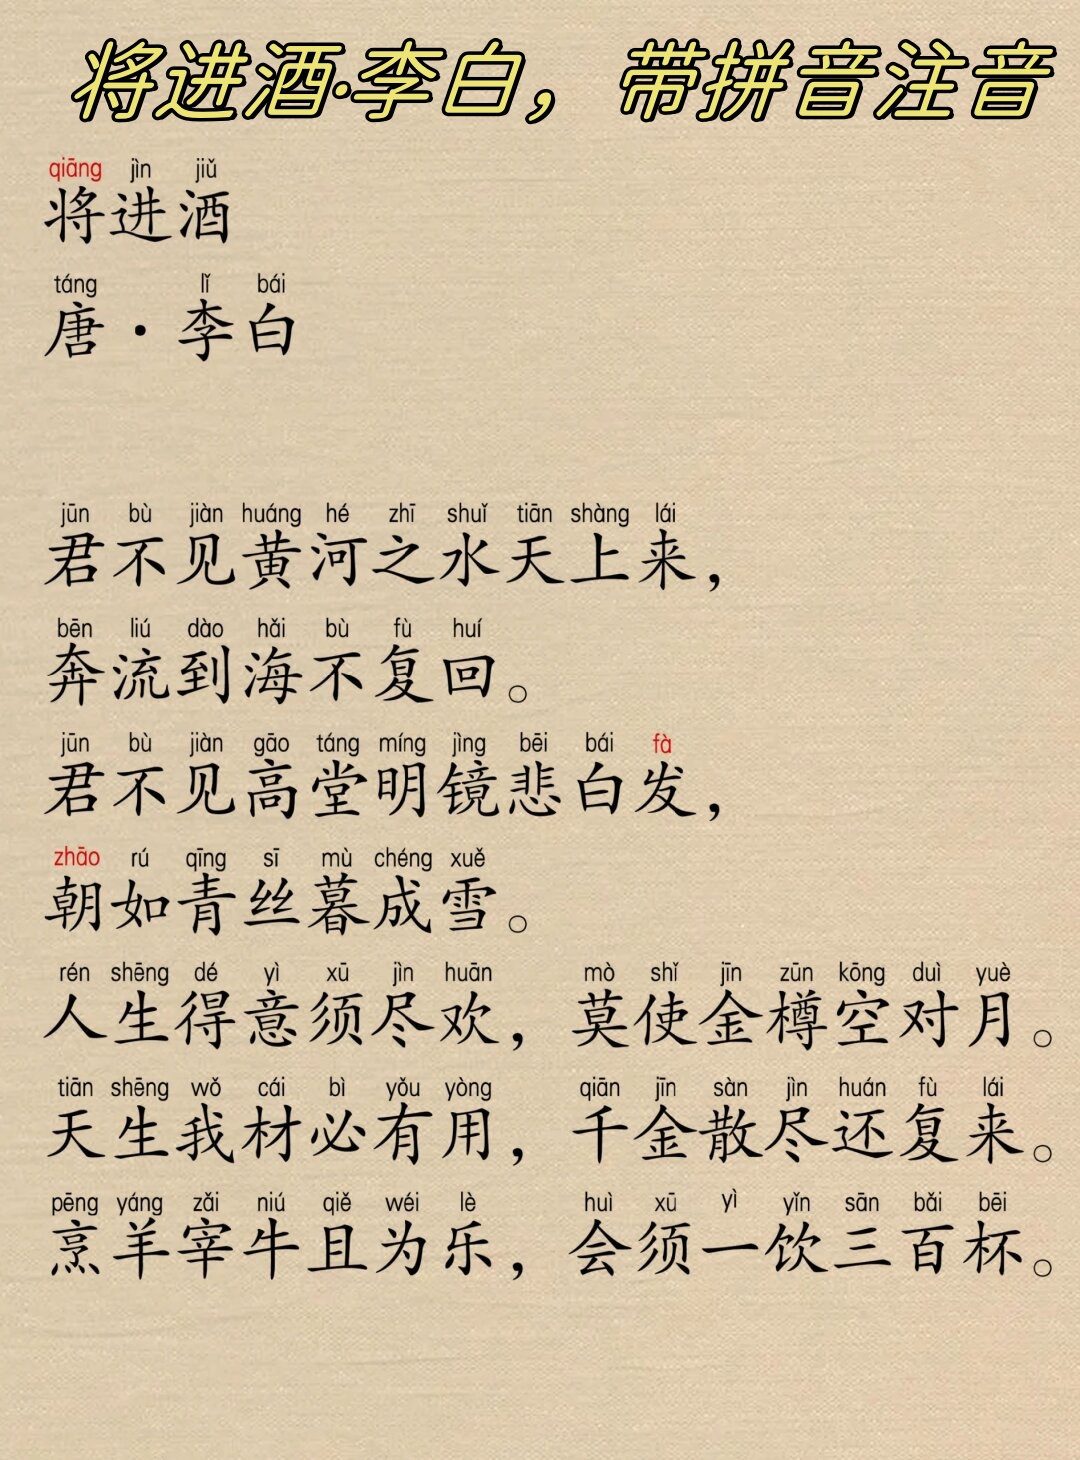 将进酒·李白，带拼音注音
qiāng jìn jiǔ
将进酒
táng lǐ bái
唐·李白
jūn bù jiàn huáng hé zhī shuǐ tiān shàng lái
君不见黄河之水天上来，
bēn liú dào hǎi bù fù huí
奔流到海不复回。
jūn bù jiàn gāo táng míng jìng bēi bái fà
君不见高堂明镜悲白发，
zhāo rú qīng sī mù chéng xuě
朝如青丝暮成雪。
rén shēng dé yì xū jìn huān mò shǐ jīn zūn kōng duì yuè
人生得意须尽欢，莫使金樽空对月。
tiān shēng wǒ cái bì yǒu yòng qiān jīn sàn jìn huán fù lái
天生我材必有用，千金散尽还复来。
pēng yáng zǎi niú qiě wéi lè huì xū yì yǐn sān bǎi bēi
烹羊宰牛且为乐，会须一饮三百杯。